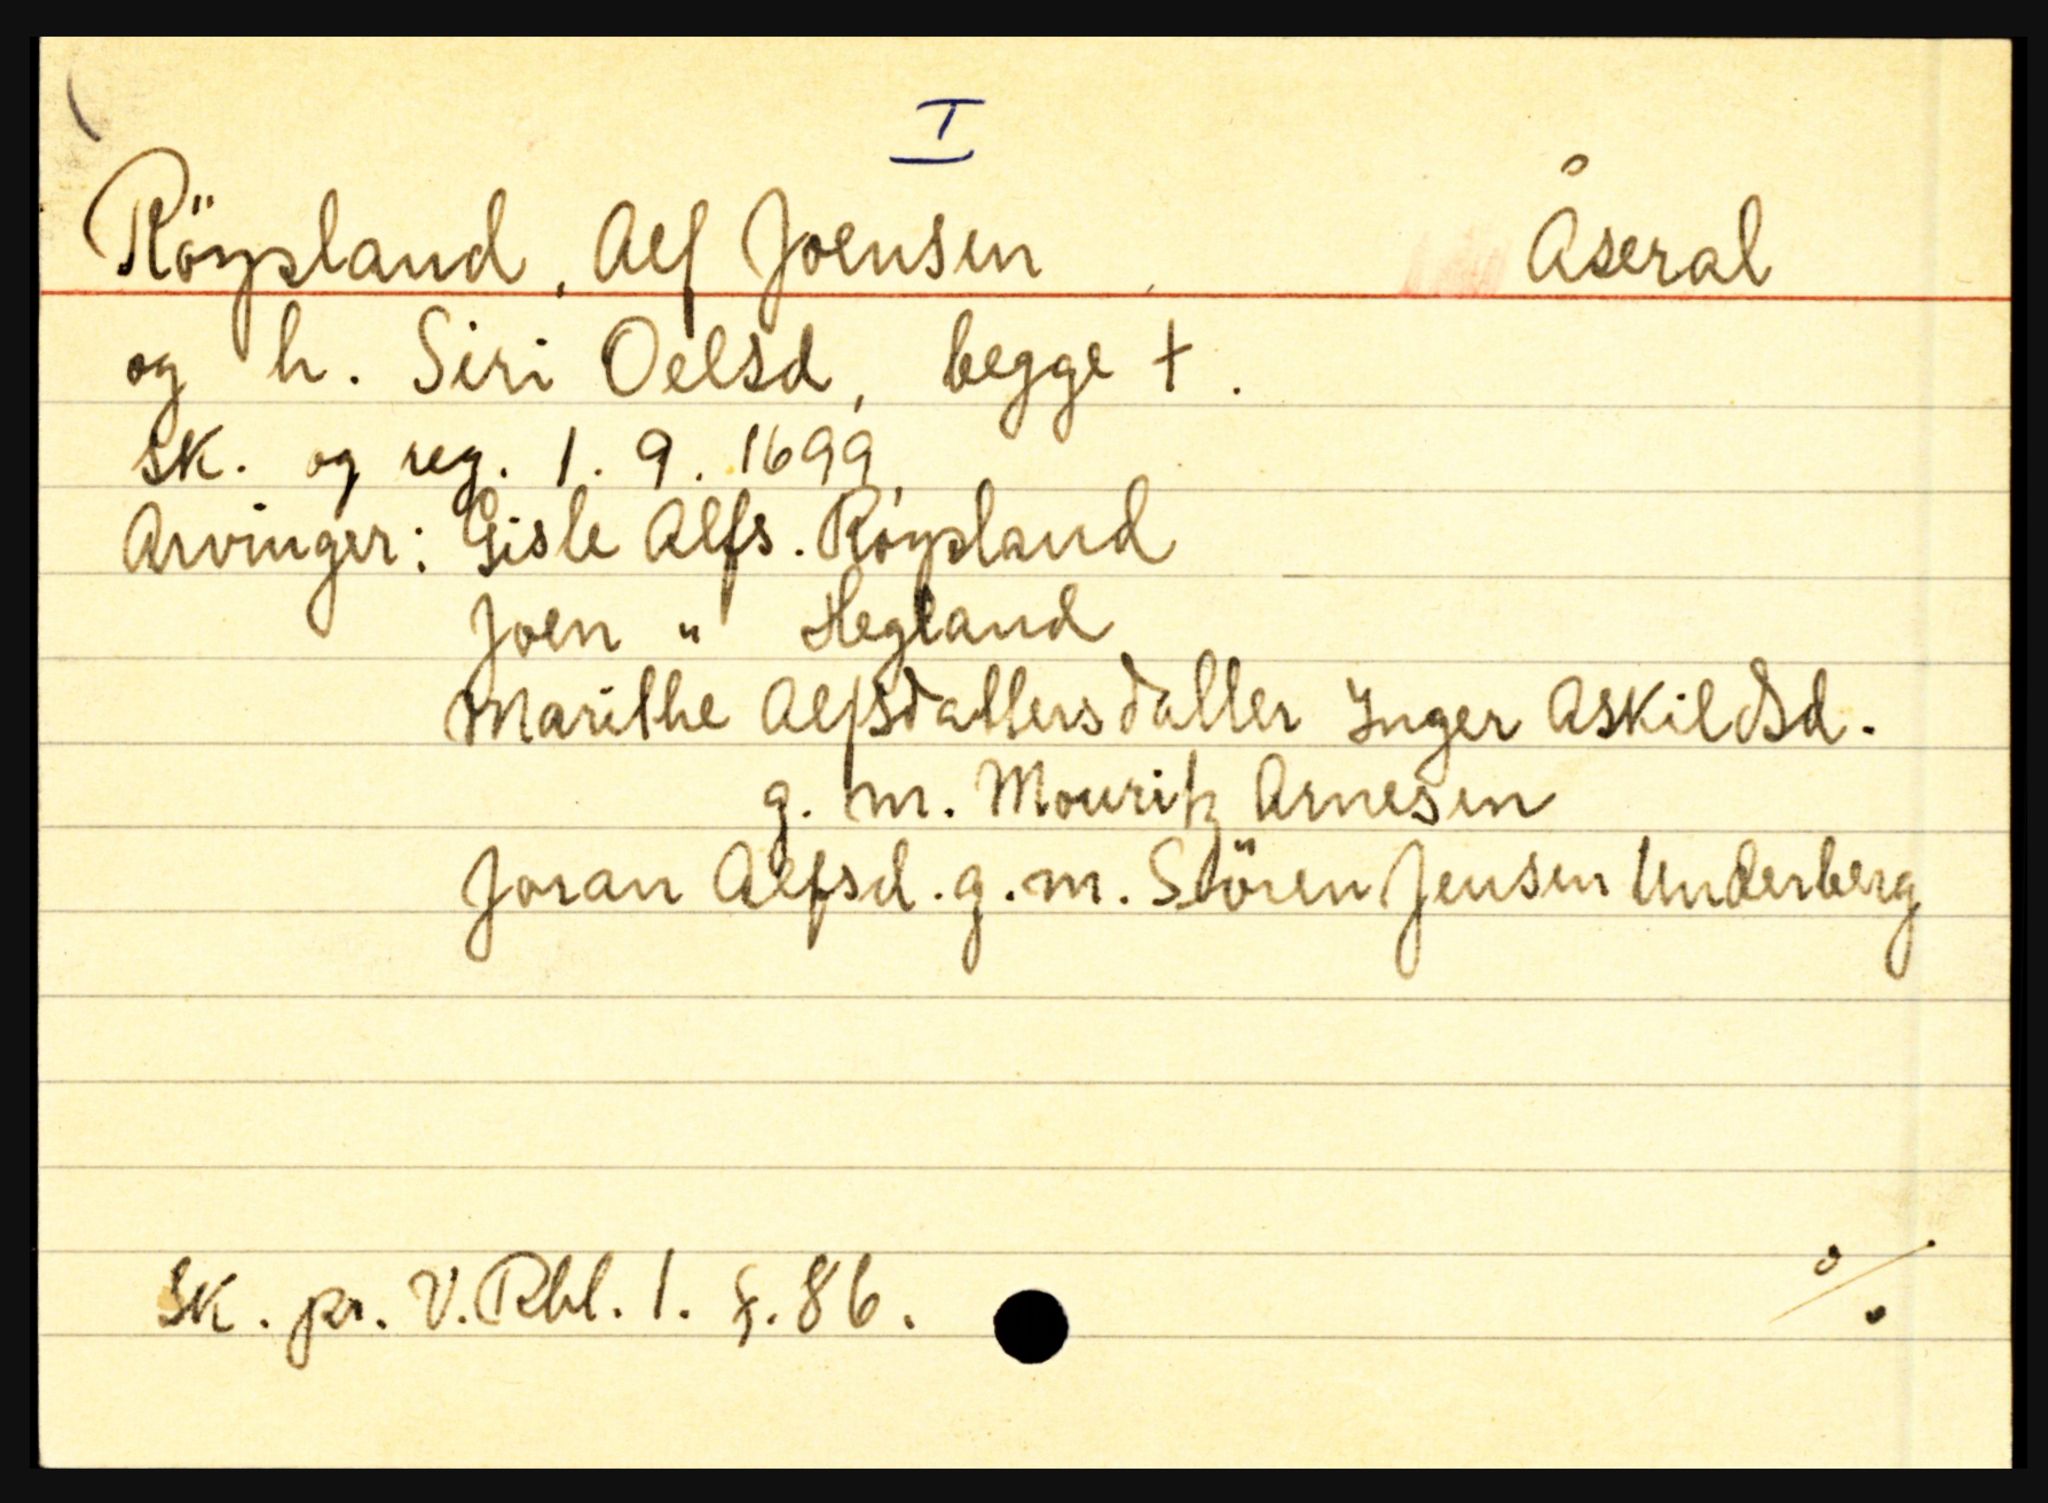 I
Röysland, Alf Joensen Åseral
og h. Siri Oelsd, begge †.
sk. og reg. 1. 9. 1699.
Arvinger: Gisle Alfs. Röysland
Joen " Hegland
Marithe Alfsdatters datter Inger Askildsd.
g. m. Mouritz Arnesen
Joran Alfsd. g. m. Sören Jensen Underberg
Sk. pr. V. Rbl. 1. f. 86.
%